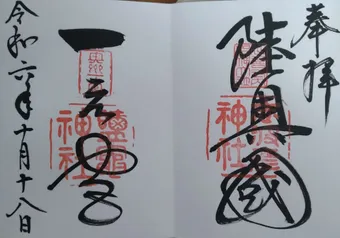 奉拝
陸奥國
志波彦神社
一之宮
鹽竈神社
令和六年十月十八日